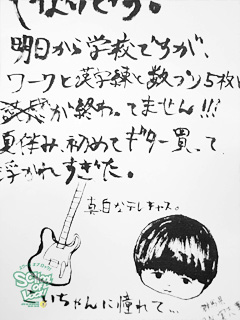 やばいです。
明日から学校ですが、
ワークと漢字練と数プリ5枚
が終わってません!!!
夏休み、初めてギター買って
浮かれすぎた。
真白なテレキャス。
いちゃんに憧れて…